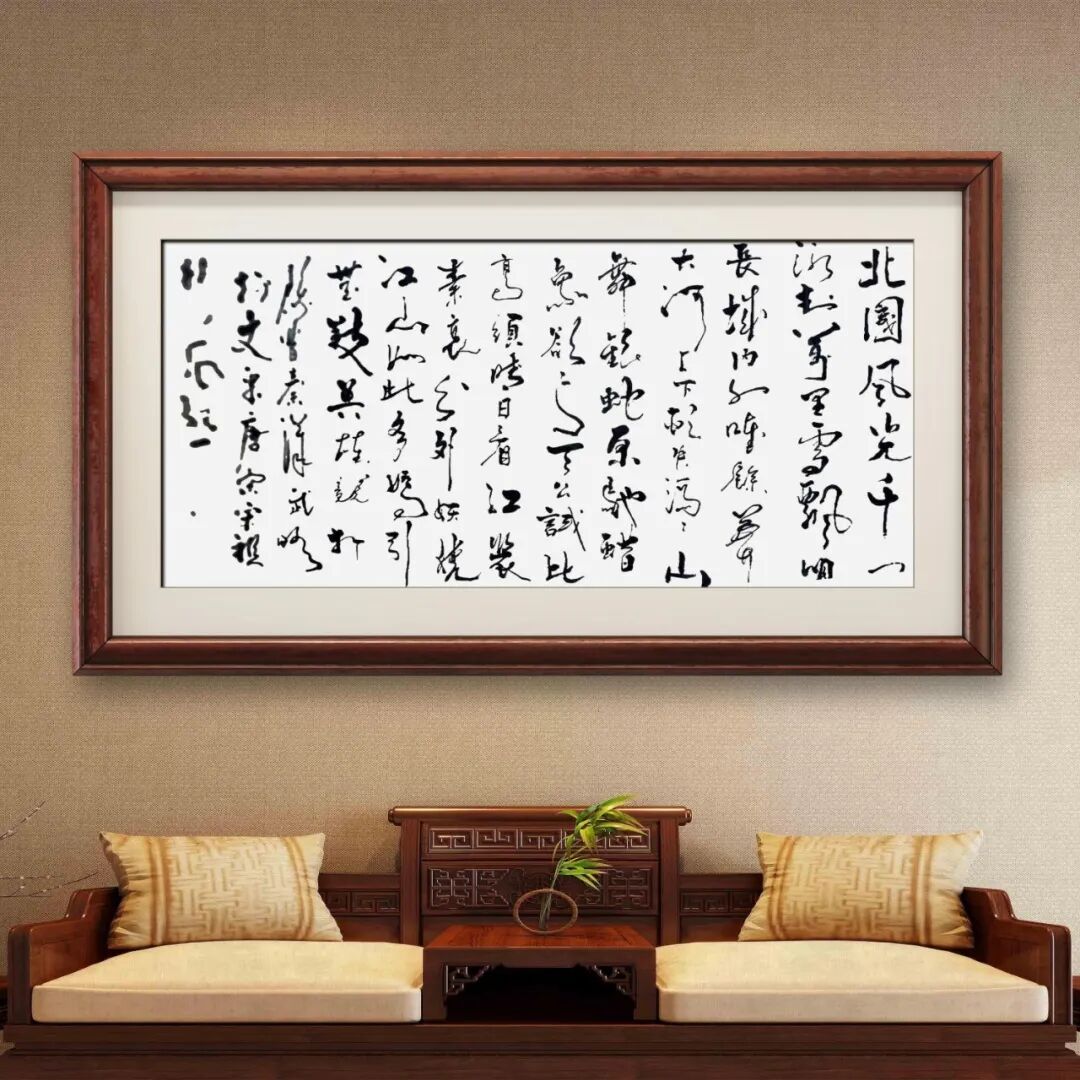 北國風光千
冰封萬里雪飄
長城内外唯餘莽
大河上下頓失滔〻山
舞銀蛇原馳
象欲与天公試比
高須晴日看紅裝
素裹分外妖嬈
江山如此多嬌引
無數英雄競折
腰惜秦漢武略
輸文采唐宗宋祖
風騷一